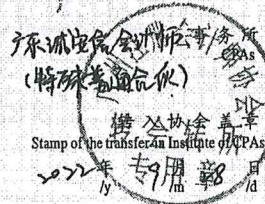 广东诚安信会计师事务所
CPAs
(特殊普通合伙)
转入协会盖章
Stamp of the transfer-in Institute of CPAs
2022年 9月 8日
/y /m /d
专用章